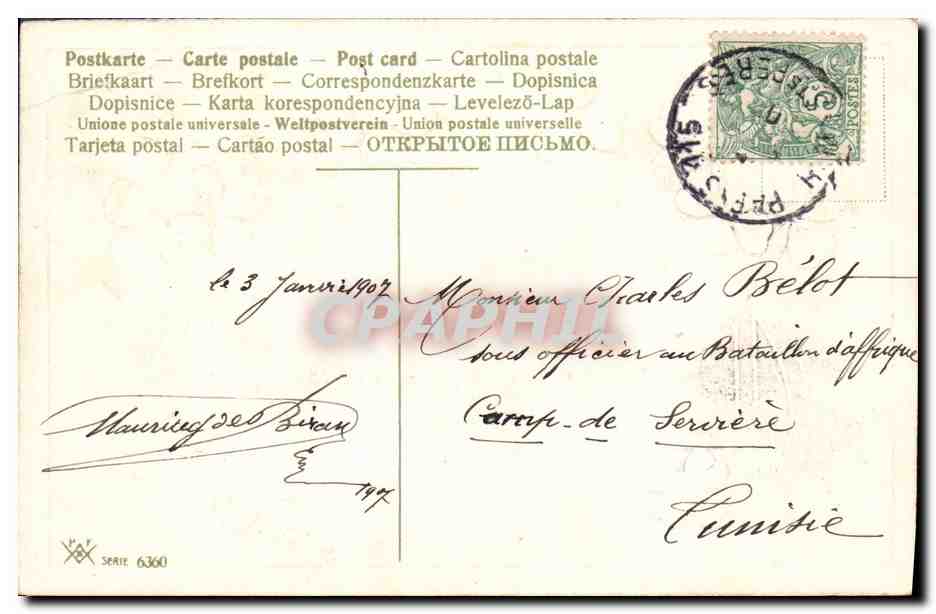 Postkarte — Carte postale — Post card — Cartolina postale
Briefkaart — Brefkort — Correspondenzkarte — Dopisnica
Dopisnice — Karta korespondencyjna — Levelező-Lap
Unione postale universale - Weltpostverein - Union postale universelle
Tarjeta postal — Cartão postal — ОТКРЫТОЕ ПИСЬМО.
POSTES
le 3 Janvie 1907
Monsieur Charles Bélot
sous officier au Bataillon d'affrique
Camp-de Servièrè
Tunisie
Maurice de Biran
1907
CPAPHIL
P F
B
SERIE 6360